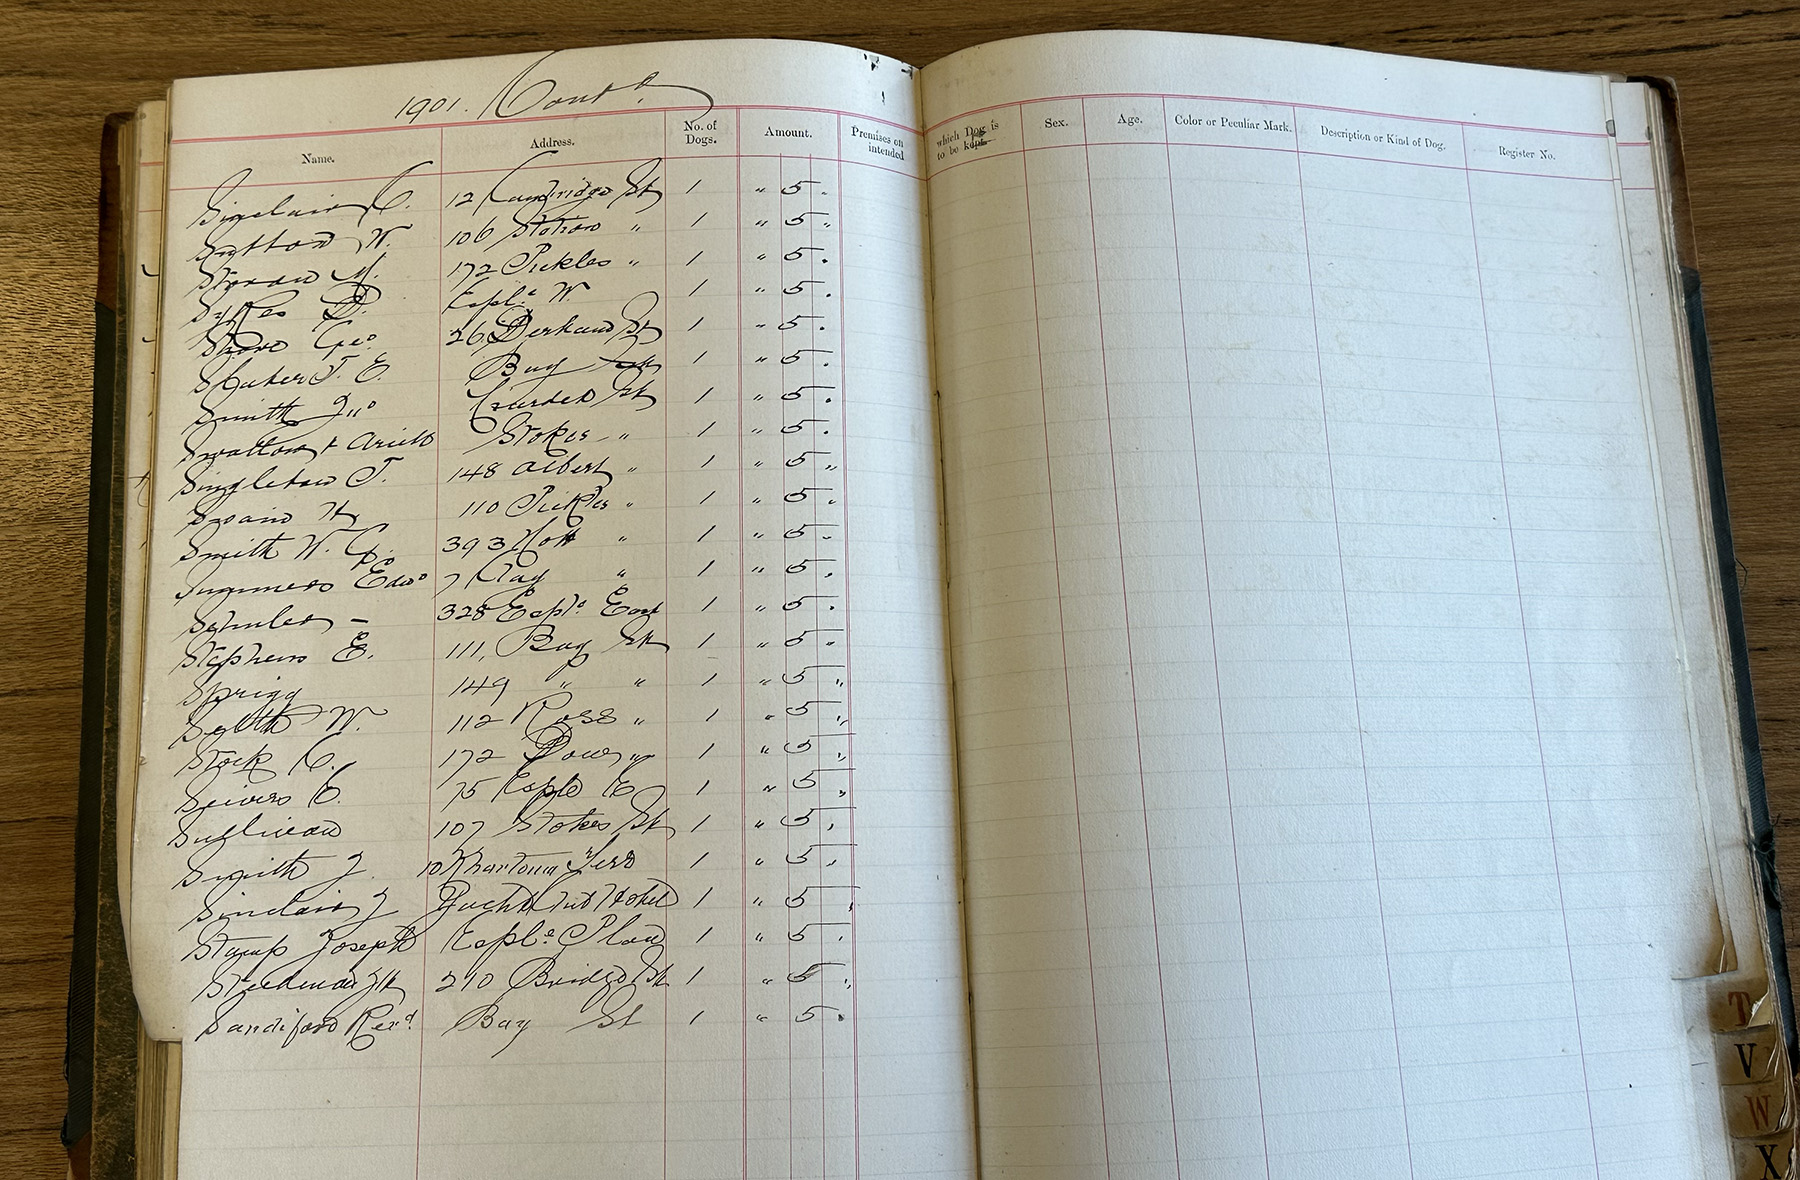 1901. Contd
Name. Address. No. of Dogs. Amount. Premises on intended which Dog is to be kept. Sex. Age. Color or Peculiar Mark. Description or Kind of Dog. Register No.
Sinclair C. 12 Cambridge St 1 " 5 "
Sutton W. 106 Station " 1 " 5 "
M. 172 Pickles " 1 " 5 "
Sykes D. Esple W. 1 " 5 "
Shore Geo 26 St 1 " 5 "
Slater J. E. Bay St 1 " 5 "
Smith Jno Garden St 1 " 5 "
Swallow & Ariell Stokes " 1 " 5 "
Singleton T. 148 Albert " 1 " 5 "
Swain H 110 Pickles " 1 " 5 "
Smith W. G. 393 Nott " 1 " 5 "
Summers Edwd 7 Clay " 1 " 5 "
– 328 Esple East 1 " 5 "
Stephens E. 111, Bay St 1 " 5 "
Sprigg 149 " " 1 " 5 "
W. 112 Ross " 1 " 5 "
Stock C. 172 Dow " 1 " 5 "
E. 75 Esple E 1 " 5 "
Sullivan 107 Stokes St 1 " 5 "
Smith J. 10 Khartoum Terr 1 " 5 "
Sinclair J Yacht Club Hotel 1 " 5 "
Stamp Joseph Esple Place 1 " 5 "
Steedman 210 Bridge St 1 " 5 "
Sandiford Revd. Bay St 1 " 5 "
T
V
W
X